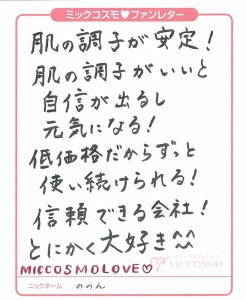 ミックコスモ♥ファンレター
肌の調子が安定!
肌の調子がいいと
自信が出るし
元気になる!
低価格だからずっと
使い続けられる!
信頼できる会社!
とにかく大好き^^
MICCOSMOLOVE♡
MICCOSMO
ニックネーム ののん